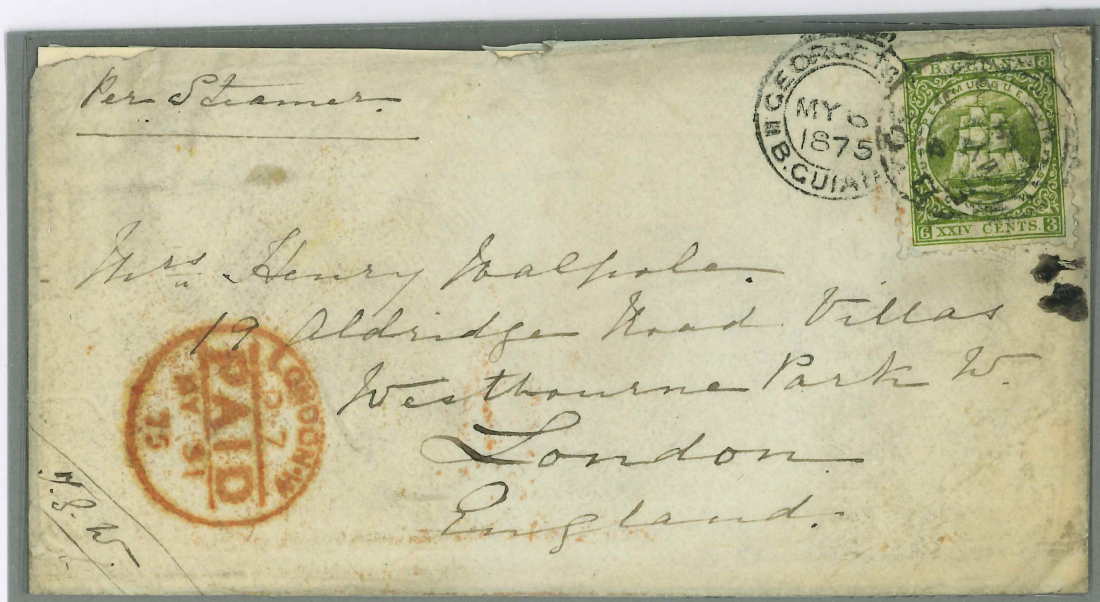 Per Steamer.
GEORGETO
MY 6
1875
B. GUIAN
B. GUIANA
XXIV CENTS.
Mrs. Henry Walpole.
19 Aldridge Road Villas
Westbourne Park W.
London
England.
LONDON·W
7
PAID
MY 31
75
H.S.W.